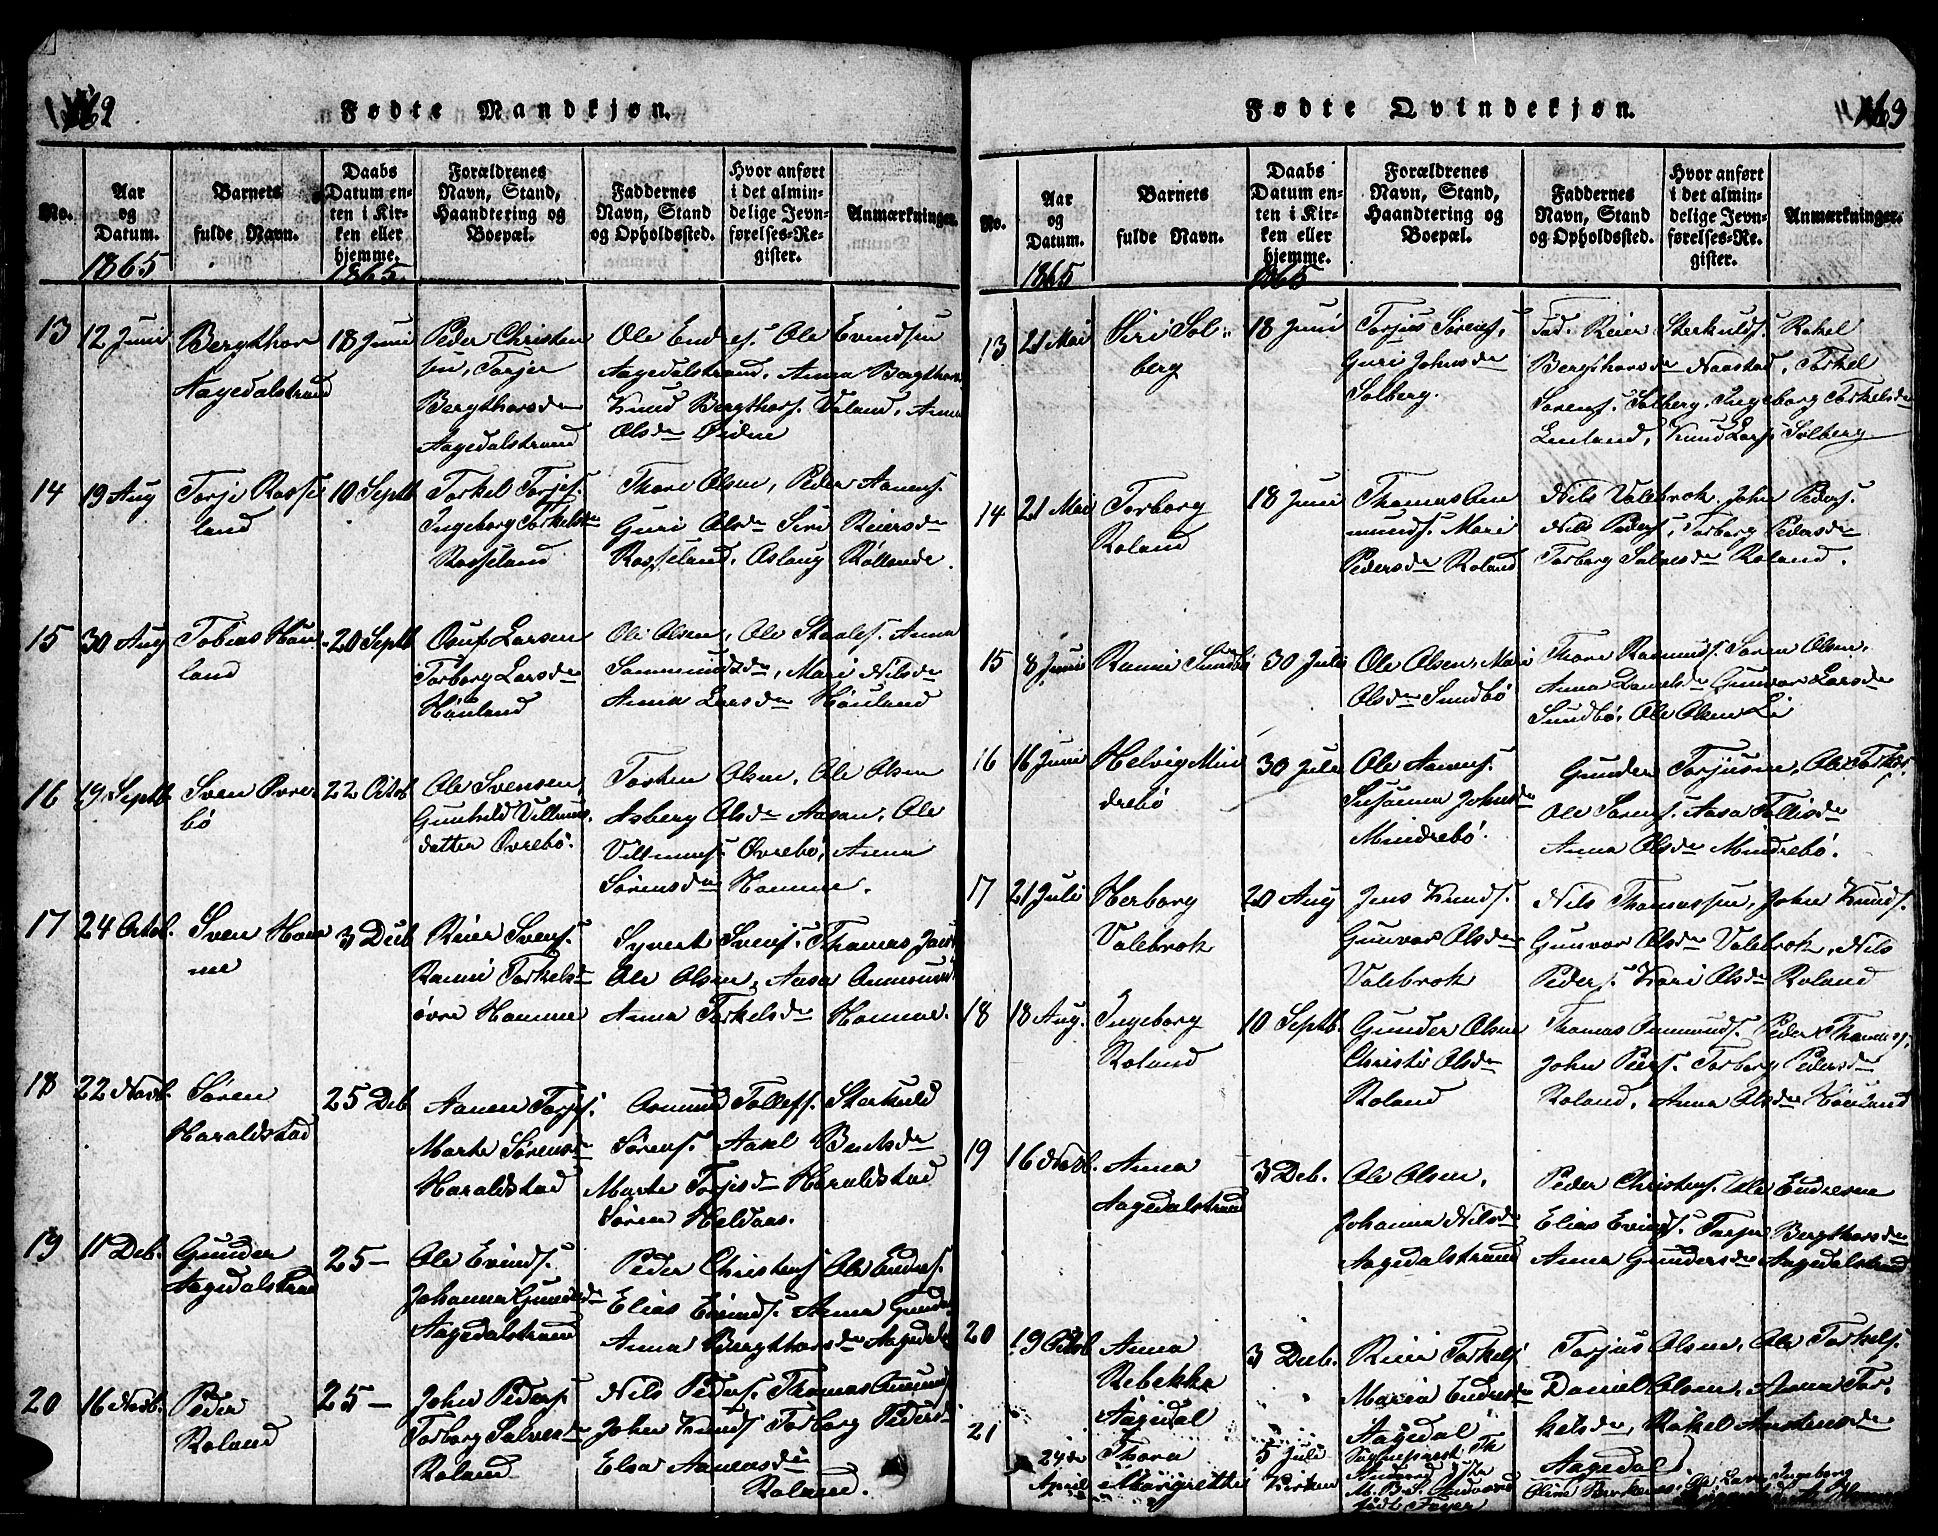 169
Fødte Mandkjøn.
No.
Aar
og
Datum.
1865
Barnets
fulde Navn.
Daabs
Datum en-
ten i Kir-
ken eller
hjemme.
1865
Forældrenes
Navn, Stand,
Haandtering og
Boepæl.
Faddernes
Navn, Stand
og Opholdssted.
Hvor anført
i det almin-
delige Jevn-
førelses-Re-
gister.
Anmærkninger.
13
12 Juni
Bergthor
Aagedalstrand
18 Juni
Peder Christen
sen, Torjer
Bergthorsdr
Aagedalstrand
Ole Endres. Ole Evindsen
Aagedalstrand, Anna Bergthors
Knud Bergthors. Voland, Anna
Olsdr Øiden
14
19 Aug
Torje Rosse
land
10 Septb
Torkel Torjes.
Ingeborg Torkelsdr
Rosseland
Thore Olsen, Peder Aanens.
Guri Olsdr Siri Reiersdr
Rosseland. Aslaug Røllende.
15
30 Aug
Tobias Høu
land
20 Septb
Osuf Larsen
Torborg Larsdr
Høuland
Ole Olsen, Ole Staales. Anna
Sammundsdr, Mari Nilsdr
Anna Larsdr Høuland
16
19 Septb.
Sven Øvre-
bø
22 Octob
Ole Svensen,
Gunhild Villums.
datter Øvrebø.
Torkin Olsen, Ole Olsen
Asberg Olsdr Aasen, Ole
Villums. Øvrebø, Anna
Sørensdr Homme.
17
24 Octob.
Sven Hom
me
3 Decb
Reier Svens.
Ranni Torkelsdr
øvre Homme
Syvert Svens. Thomas Jens
Ole Olsen, Aasa Aanmunds
Anna Torkelsdr Homme.
18
22 Novb.
Søren
Haraldstad
25 Deb
Aanen Torjs.
Marte Sørensdr
Haraldstad
Osmund Tollefs. Sterkuld
Sørens. Axel Bentsdr
Marte Torjsdr Haraldstad
Søren Heldaas.
19
11 Deb.
Gunder
Aagedalstrand
25 —
Ole Evinds.
Johanna Gundersdr
Aagedalstrand
Peder Christens Ole Endres.
Elias Evinds. Anna Gunder
Anna Bergthorsdr Aagedals
20
16 Novb.
Peder
Roland
25 —
John Peders
Torborg Salvesdr
Roland
Nils Peders. Thomas Aanmunds
John Knuds Torborg Peders
Elsa Aanensdr
Roland.
169
Fødte Qvindekjøn.
No.
Aar
og
Datum.
1865
Barnets
fulde Navn.
Daabs
Datum en-
ten i Kir-
ken eller
hjemme.
1865
Forældrenes
Navn, Stand,
Haandtering og
Boepæl.
Faddernes
Navn, Stand
og Opholdssted.
Hvor anført
i det almin-
delige Jevn-
førelses-Re-
gister.
Anmærkninger.
13
21 Mai
Siri Sol-
berg
18 Juni
Torjus Sørens,
Guri Johnsdr
Solberg.
Fad. Reier Sterkulds. Rakel
Bergthorsdr Naastad, Torkel
Sørens. Solberg, Ingeborg Torkelsdr
Lenland, Knud Lars. Solberg
14
21 Mai
Torborg
Roland
18 Juni
Thomas Aan
munds. Mari
Pedersdr Roland
Nils Valebrok. John Peders.
Nils Peders, Torborg Pedersdr
Torborg Salvesdr Roland.
15
8 Juni
Ranni Sundbø
30 Juli
Ole Olsen, Mari
Olsdr Sundbø
Thore Rasmunds. Søren Olsen,
Anna Danielsdr Gunvor Larsdr
Sundbø, Ole Olsen Li
16
16 Juni
Helvig Min
drebø
30 Juli
Ole Aanens.
Susanna Johnsdr
Mindrebø.
Gunder Torjusen, Ole Torkels.
Ole Sørens. Aasa Tollisdr
Anna Olsdr Mindrebø.
17
21 Juli
Herborg
Valebrok
20 Aug
Jens Knuds.
Gunvor Olsdr
Valebrok
Nils Thomassen, John Knuds.
Gunvor Olsdr Valebrok, Nils
Peders. Kari Olsdr Roland
18
18 Aug.
Ingeborg
Roland
10 Septb.
Gunder Olsen
Christi Olsdr
Roland
Thomas Aanmunds. Peder Thomas,
John Peders. Torborg Pedersdr
Roland, Anna Olsdr Høuland
19
16 Novb.
Anna
Aagedalstrand
3 Deb.
Ole Olsen,
Johanna Nilsdr
Aagedalstrand
Peder Christens. Ole Endresen
Elias Evinds. Torjer Bergthorsdr
Anna Gundersdr Aagedalstrand
20
19 Octob
Anna
Rebekka
Aagedal
3 Decb.
Reier Torkels
Maria Endresdr
Aagedal
Torjus Olsen, Ole Torkels.
Daniel Olsen, Anna Tor-
kelsdr, Rakel Anstensdr
Aagedal
21
24de
April
Thora
Margrethe
5 Juli
Kirken
Sognepræst Th
M. B. S.
født Feyer
Oline
Ingeborg